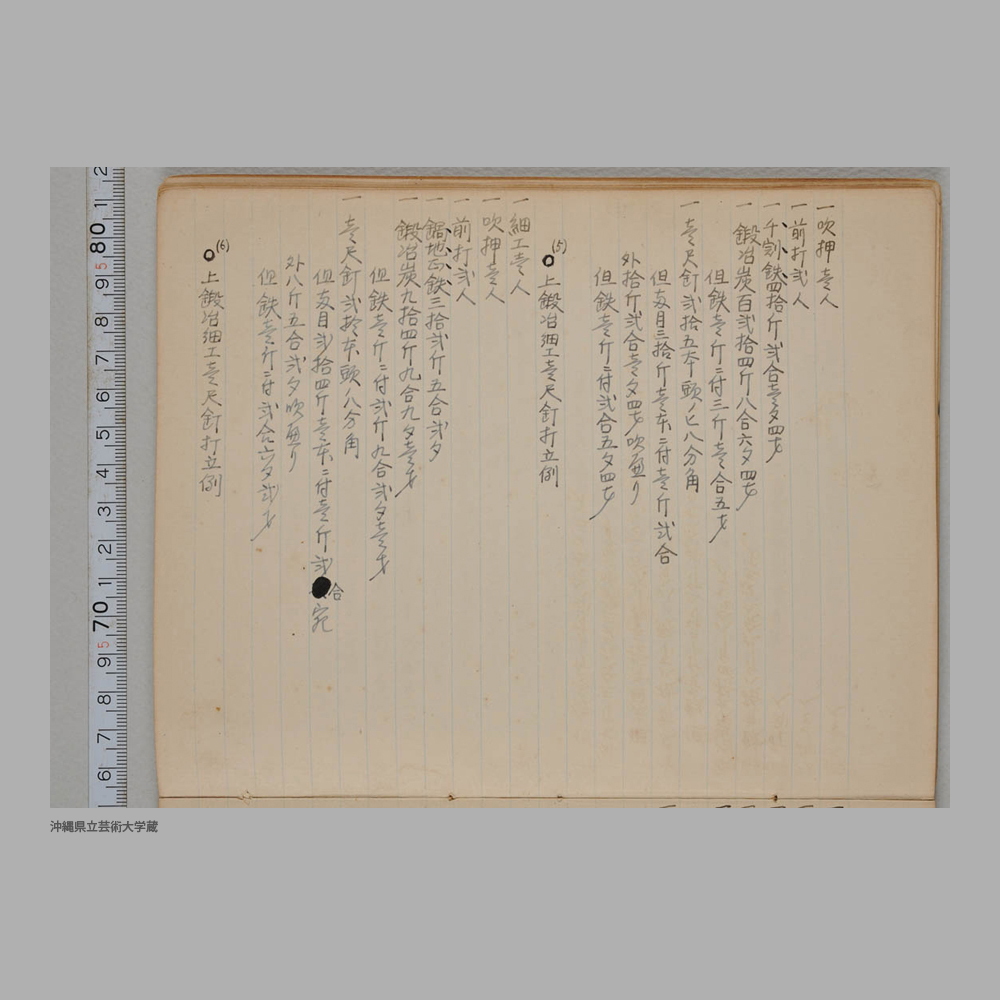 一 吹押壱人
一 前打弐人
一 千割鉄四拾斤弐合壱夕四才
一 鍛冶炭百弐拾四斤八合六夕四才
但鉄壱斤ニ付三斤壱合五才
一 壱尺釘弐拾五本頭ノヒ八分角
但斤目三拾斤壱本ニ付壱斤弐合
外拾斤弐合壱夕四才吹減り
但鉄壱斤ニ付弐合五夕四才
(5)
○上鍛冶細工壱尺釘打立例
一 細工壱人
一 吹押壱人
一 前打弐人
一 鍋地正鉄三拾弐斤五合弐夕
一 鍛冶炭九拾四斤九合九夕壱才
但鉄壱斤ニ付弐斤九合弐夕壱才
一 壱尺釘弐拾本頭ノ八分角
但斤目弐拾四斤壱本ニ付壱斤弐合宛
外八斤五合弐夕吹減り
但鉄壱斤ニ付弐合六夕弐才
(6)
○上鍛冶細工壱尺釘打立例
80
70
沖縄県立芸術大学蔵